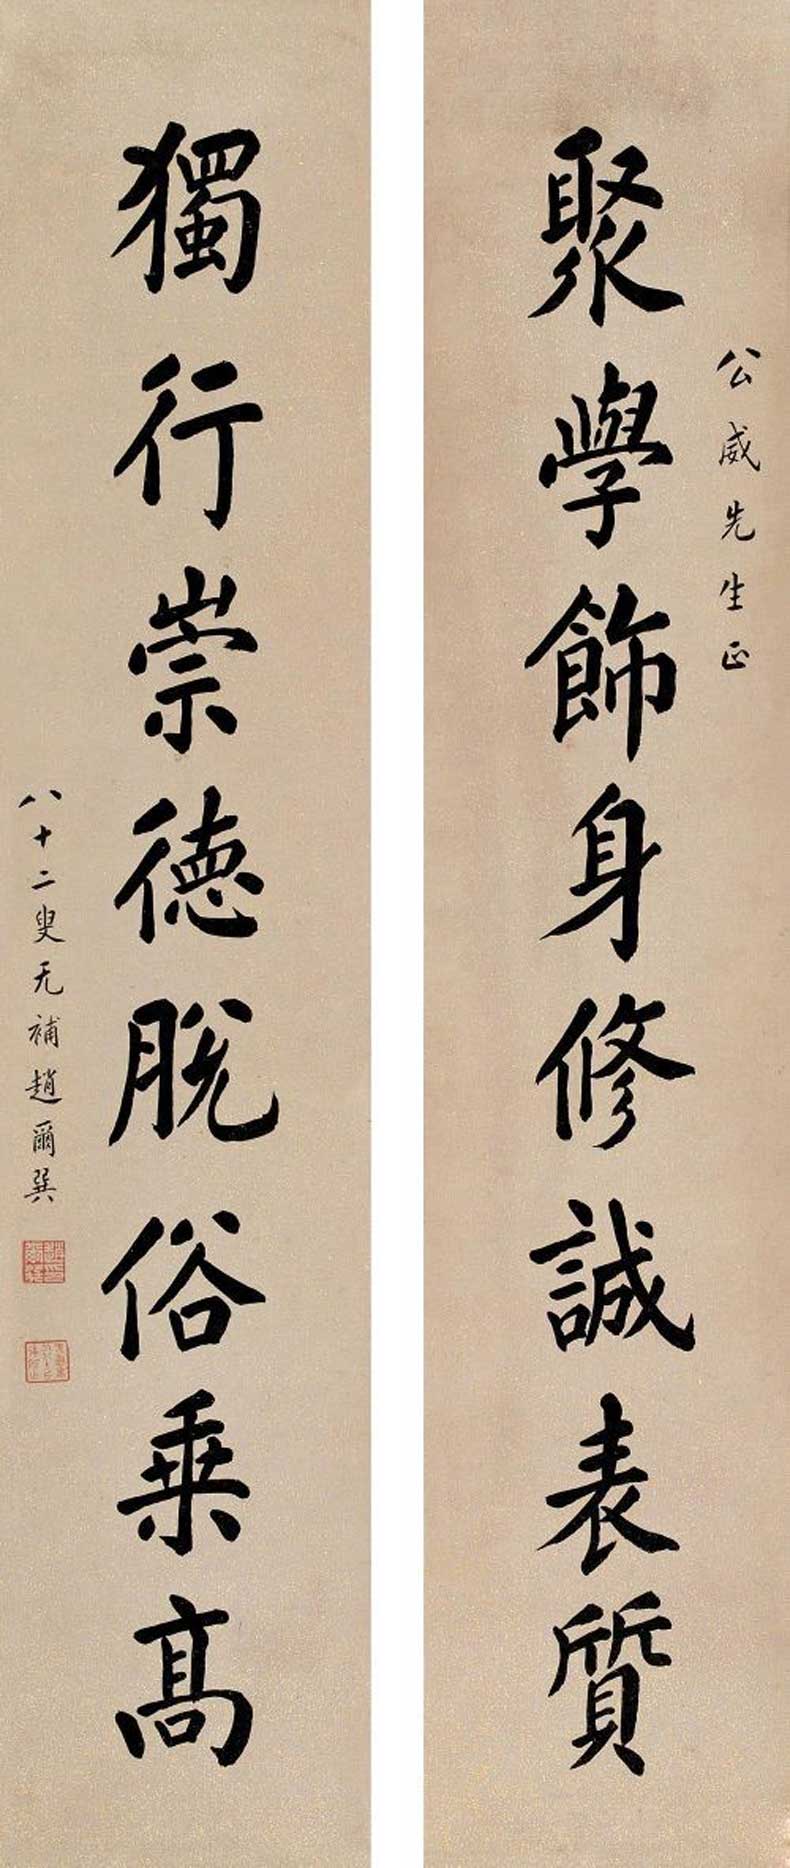 公威先生正
聚學飾身修誠表質
獨行崇德脫俗乘高
八十二叟无補趙爾巽